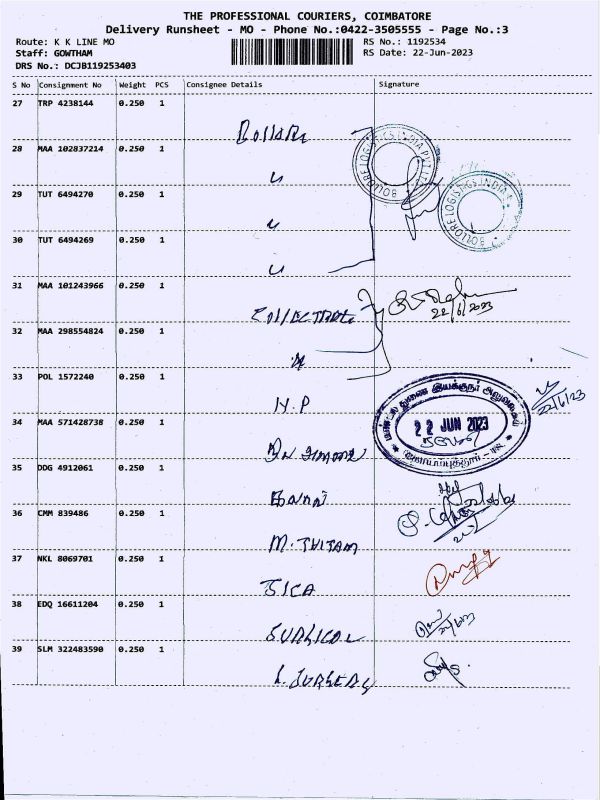 THE PROFESSIONAL COURIERS, COIMBATORE
Delivery Runsheet - MO - Phone No.:0422-3505555 - Page No.:3
Route: K K LINE MO RS No.: 1192534
Staff: GOWTHAM RS Date: 22-Jun-2023
DRS No.: DCJB119253403
S No Consignment No Weight PCS Consignee Details Signature
27 TRP 4238144 0.250 1
BOLLORE LOGISTICS INDIA PVT LTD
28 MAA 102837214 0.250 1
BOLLORE LOGISTICS INDIA
29 TUT 6494270 0.250 1
30 TUT 6494269 0.250 1
31 MAA 101243966 0.250 1
22/6/2023
32 MAA 298554824 0.250 1
33 POL 1572240 0.250 1
N.P
22/6/23
34 MAA 571428738 0.250 1
22 JUN 2023
35 DDG 4912061 0.250 1
36 CMM 839486 0.250 1
37 NKL 8069701 0.250 1
SICA
38 EDQ 16611204 0.250 1
SURGICAL
39 SLM 322483590 0.250 1